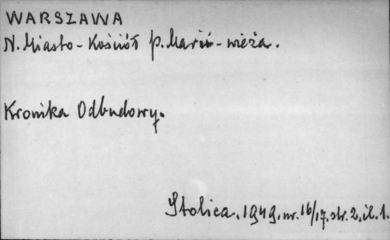 WARSZAWA
N. Miasto - Kościół P. Marii - wieża.
Kronika Odbudowy.
Stolica. 1949. nr. 16/17. str. 2, il. 1.